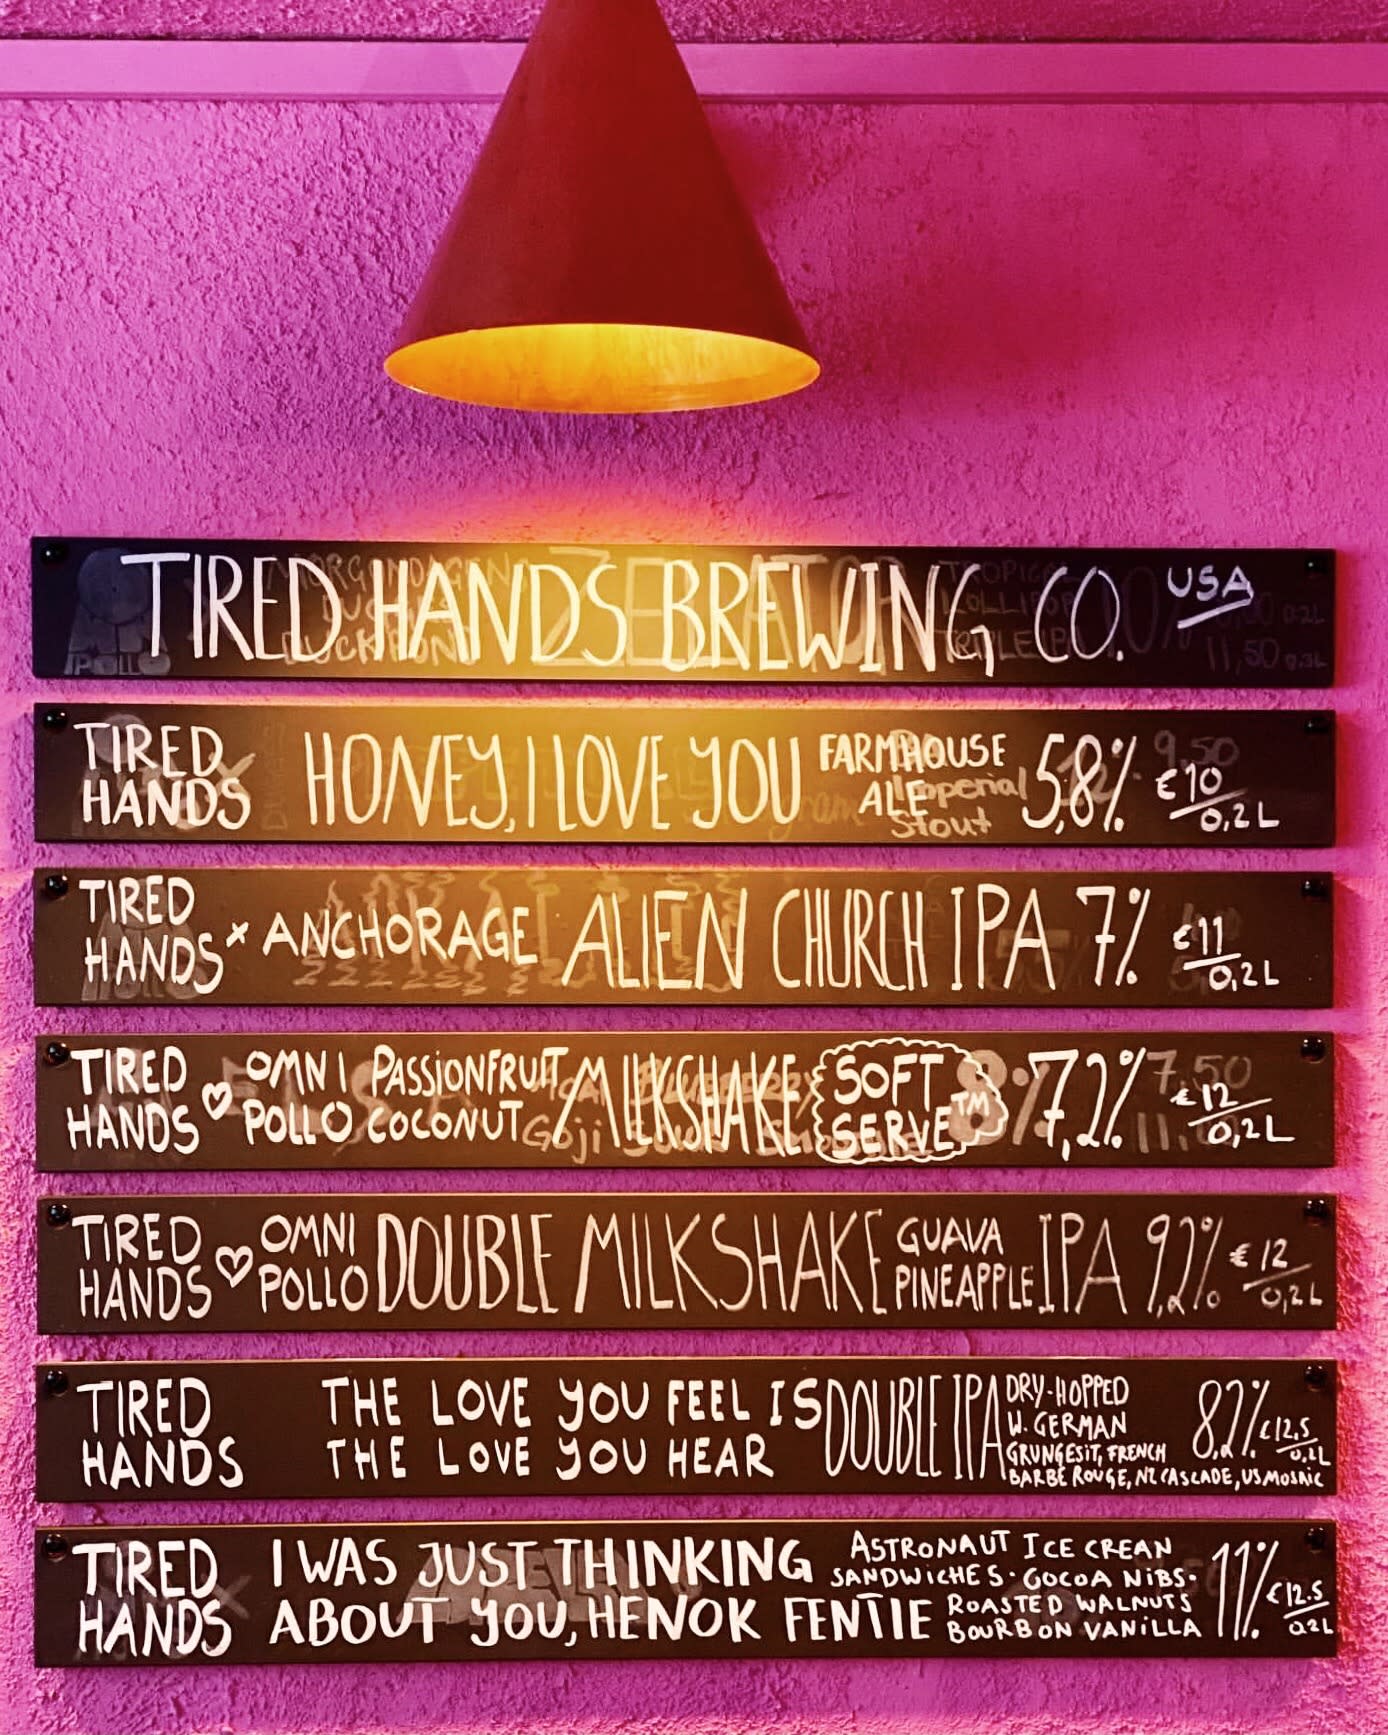 TIRED HANDS BREWING CO. USA
TIRED
HANDS
HONEY, I LOVE YOU
FARMHOUSE
ALE
5,8%
€10
0,2L
TIRED
HANDS
x ANCHORAGE ALIEN CHURCH IPA 7%
€11
0,2L
TIRED
HANDS
♡
OMNI
POLLO
PASSIONFRUIT
COCONUT
MILKSHAKE
SOFT
SERVE™
7,2%
€12
0,2L
TIRED
HANDS
♡
OMNI
POLLO
DOUBLE MILKSHAKE
GUAVA
PINEAPPLE
IPA 9,2%
€12
0,2L
TIRED
HANDS
THE LOVE YOU FEEL IS
THE LOVE YOU HEAR
DOUBLE IPA
DRY-HOPPED
W. GERMAN
GRUNGESIT, FRENCH
BARBE ROUGE, NZ CASCADE, US MOSAIC
8,2%
€12,5
0,2L
TIRED
HANDS
I WAS JUST THINKING
ABOUT YOU, HENOK FENTIE
ASTRONAUT ICE CREAN
SANDWICHES · COCOA NIBS ·
ROASTED WALNUTS
BOURBON VANILLA
11%
€12.5
0.2L